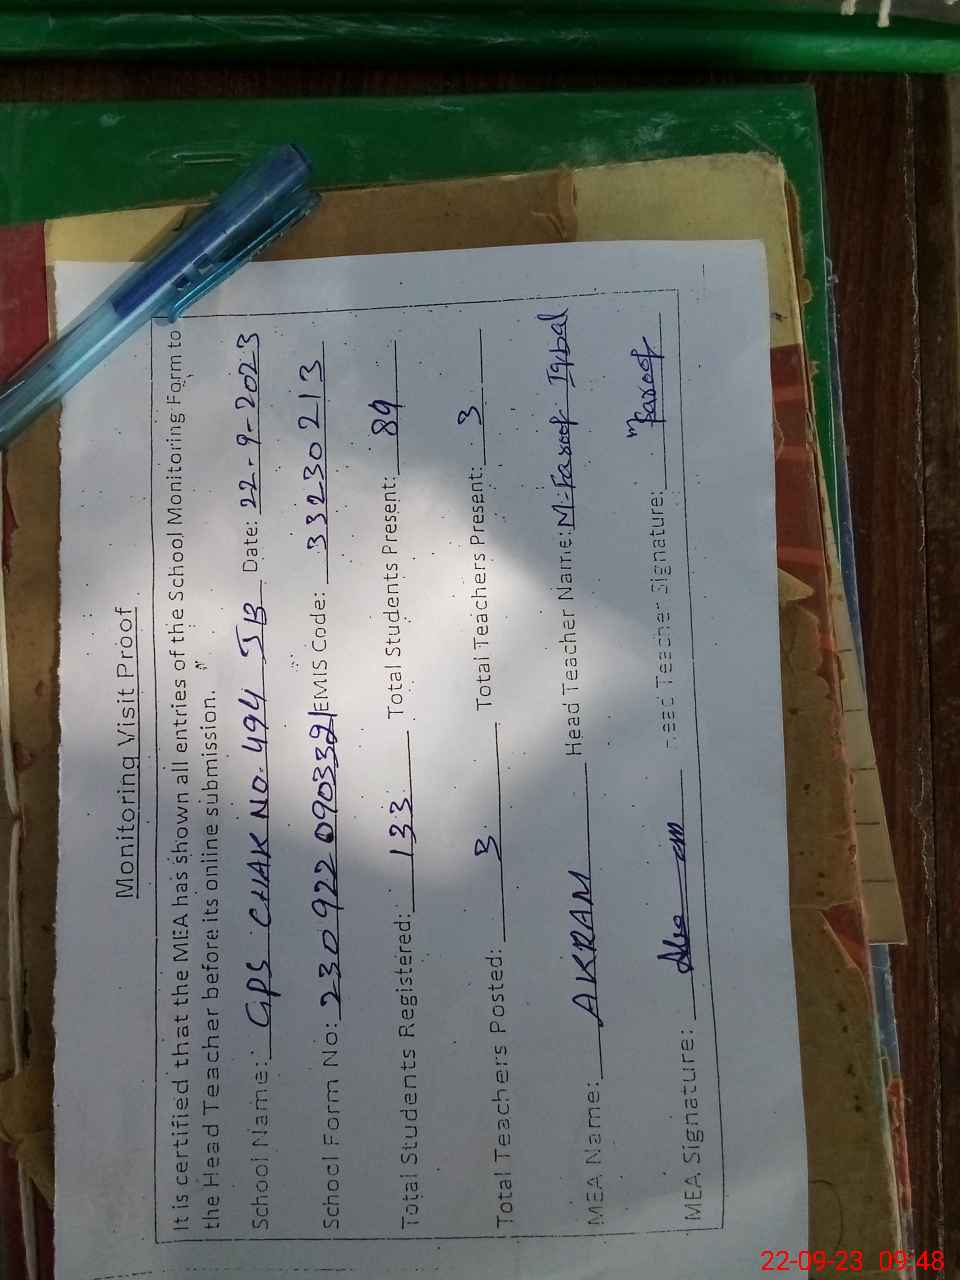 Monitoring Visit Proof
It is certified that the MEA has shown all entries of the School Monitoring Form to
the Head Teacher before its online submission.
School Name: GPS CHAK No. 494 JB Date: 22-9-2023
School Form No: 2309220903391 EMIS Code: 33230213
Total Students Registered: 133 Total Students Present: 89
Total Teachers Posted: 3 Total Teachers Present: 3
MEA Name: AKRAM Head Teacher Name: M-Farooq Iqbal
MEA Signature: Head Teacher Signature: m farooq
22-09-23 09:48